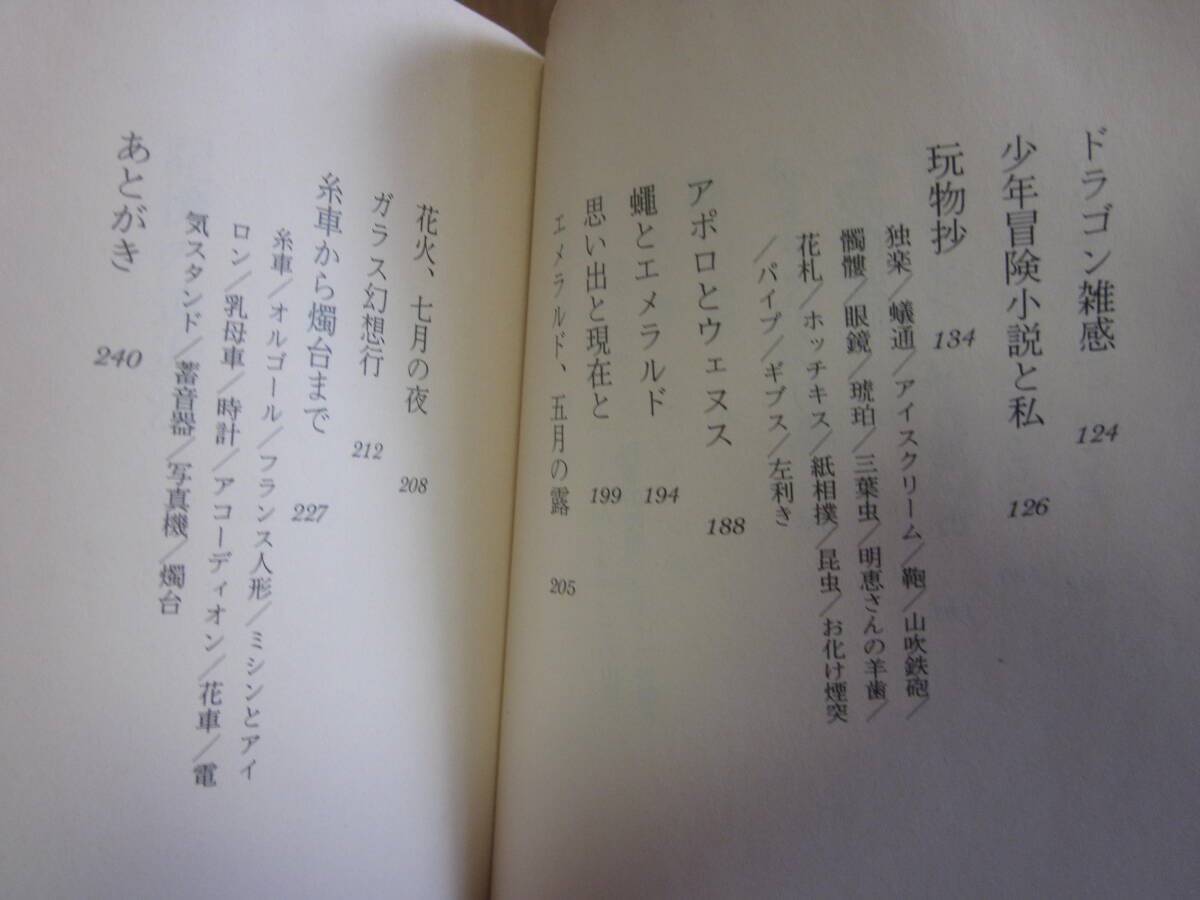 ドラゴン雑感 124
少年冒険小説と私 126
玩物抄 134
独楽/蟻通/アイスクリーム/鞄/山吹鉄砲/
髑髏/眼鏡/琥珀/三葉虫/明恵さんの羊歯/
花札/ホッチキス/紙相撲/昆虫/お化け煙突
/パイプ/ギプス/左利き
アポロとウェヌス 188
蠅とエメラルド 194
思い出と現在と 199
エメラルド、五月の露 205
花火、七月の夜 208
ガラス幻想行 212
糸車から燭台まで 227
糸車/オルゴール/フランス人形/ミシンとアイ
ロン/乳母車/時計/アコーディオン/花車/電
気スタンド/蓄音器/写真機/燭台
あとがき 240